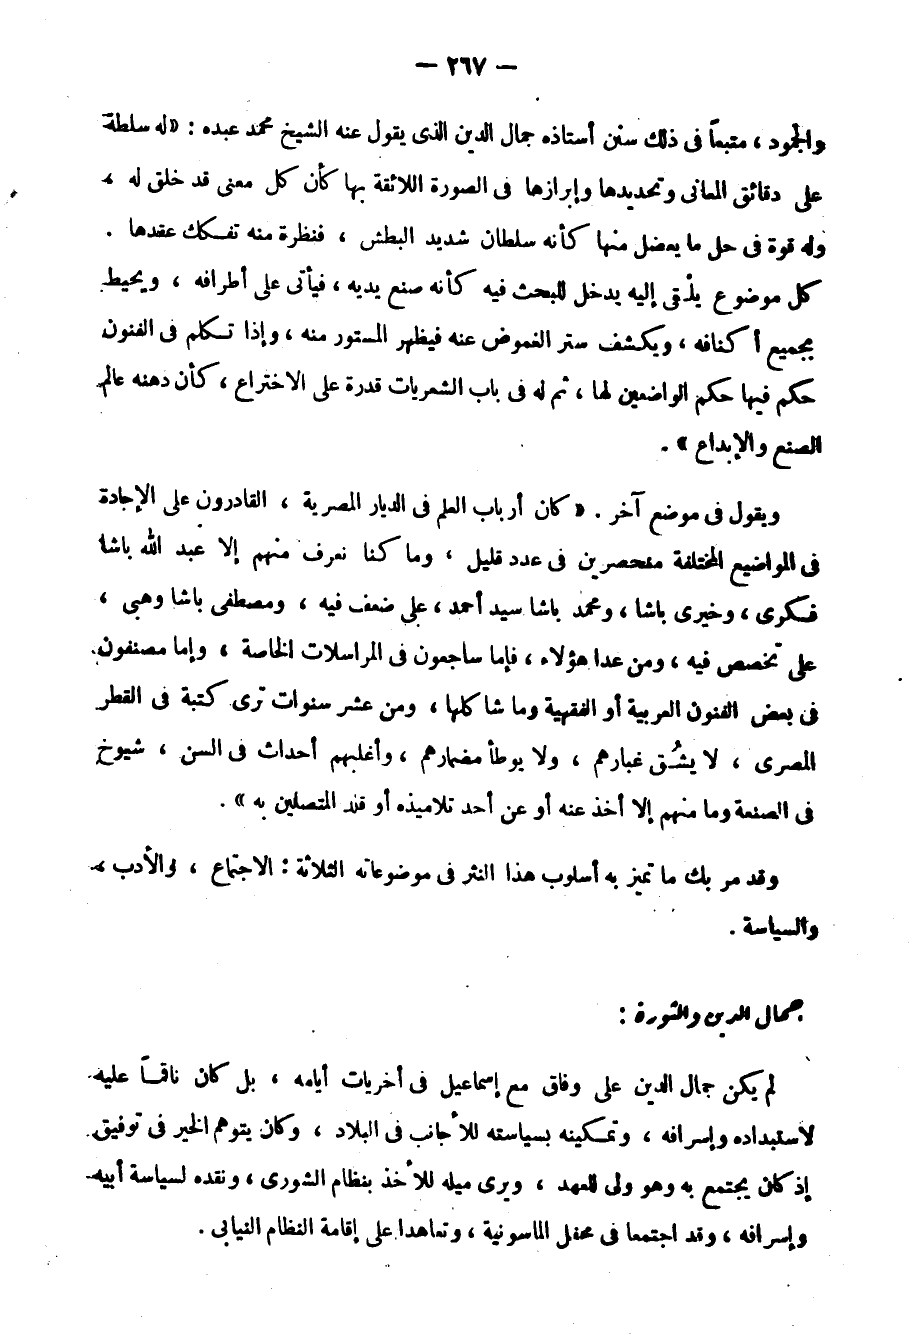 — ٢٦٧ —
والجمود ، متبعاً فى ذلك سنن أستاذه جمال الدين الذى يقول عنه الشيخ محمد عبده : «له سلطة
على دقائق المعانى وتحديدها وإبرازها فى الصورة اللائقة بها كأن كل معنى قد خلق له ،
وله قوة فى حل ما يعضل منها كأنه سلطان شديد البطش ، فنظرة منه تفكك عقدها .
كل موضوع يلقى إليه يدخل للبحث فيه كأنه صنع يديه ، فيأتى على أطرافه ، ويحيط
بجميع أكنافه ، ويكشف ستر الغموض عنه فيظهر المستور منه ، وإذا تكلم فى الفنون
حكم فيها حكم الواضعين لها ، ثم له فى باب الشعريات قدرة على الاختراع ، كأن ذهنه عالم
الصنع والإبداع » .
ويقول فى موضع آخر . « كان أرباب العلم فى الديار المصرية ، القادرون على الإجادة
فى المواضيع المختلفة منحصرين فى عدد قليل ، وما كنا نعرف منهم إلا عبد الله باشا
فكرى ، وخيرى باشا ، ومحمد باشا سيد أحمد ، على ضعف فيه ، ومصطفى باشا وهبى ،
على تخصص فيه ، ومن عدا هؤلاء ، فإما ساجعون فى المراسلات الخاصة ، وإما مصنفون
فى بعض الفنون العربية أو الفقهية وما شاكلها ، ومن عشر سنوات ترى كتبة فى القطر
المصرى ، لا يشُق غبارهم ، ولا يوطأ مضمارهم ، وأغلبهم أحداث فى السن ، شيوخ
فى الصنعة وما منهم إلا أخذ عنه أو عن أحد تلاميذه أو قلد المتصلين به » .
وقد مر بك ما تميز به أسلوب هذا النثر فى موضوعاته الثلاثة : الاجتماع ، والأدب ،
والسياسة .
جمال الدين والثورة :
لم يكن جمال الدين على وفاق مع إسماعيل فى أخريات أيامه ، بل كان ناقماً عليه
لاستبداده وإسرافه ، وتمكينه بسياسته للأجانب فى البلاد ، وكان يتوهم الخير فى توفيق
إذ كان يجتمع به وهو ولى للعهد ، ويرى ميله للأخذ بنظام الشورى ، ونقده لسياسة أبيه
وإسرافه ، وقد اجتمعا فى محفل الماسونية ، وتعاهدا على إقامة النظام النيابى .